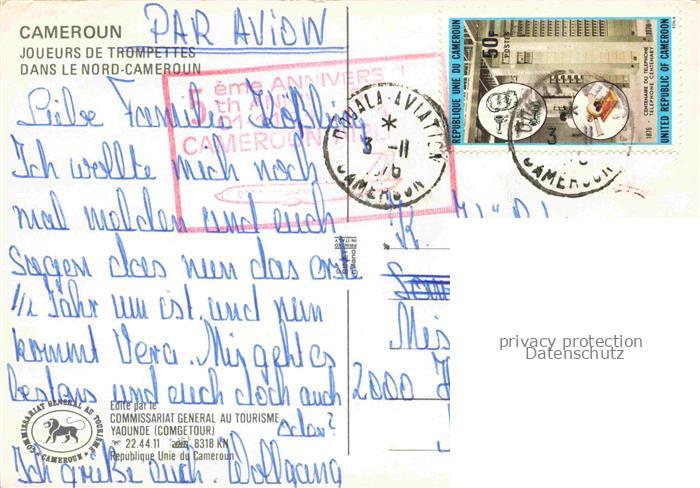 CAMEROUN PAR AVION
JOUEURS DE TROMPETTES
DANS LE NORD-CAMEROUN
5 ème ANNIVERS
th ANNI
CAMEROON
DOUALA-AVIATION
3 -11
76
CAMEROUN
REPUBLIQUE UNIE DU CAMEROUN
50F
POSTES
CENTENAIRE DU TELEPHONE
TELEPHONE CENTENARY
1876 1976
UNITED REPUBLIC OF CAMEROON
CAMEROUN
Liebe Familie
Ich wollte mich noch
mal melden und euch
sagen das nun das erste
1/2 Jahr um ist und nun
kommt Vera. Mir geht es
bestens und euch doch auch
oder?
Ich grüße euch. Wolfgang
K.
Mis
2000 H
privacy protection
Datenschutz
COMMISSARIAT GENERAL AU TOURISME
CAMEROUN
Edité par le
COMMISSARIAT GENERAL AU TOURISME
YAOUNDE (COMGETOUR)
22.44.11 8318 KN
République Unie du Cameroun